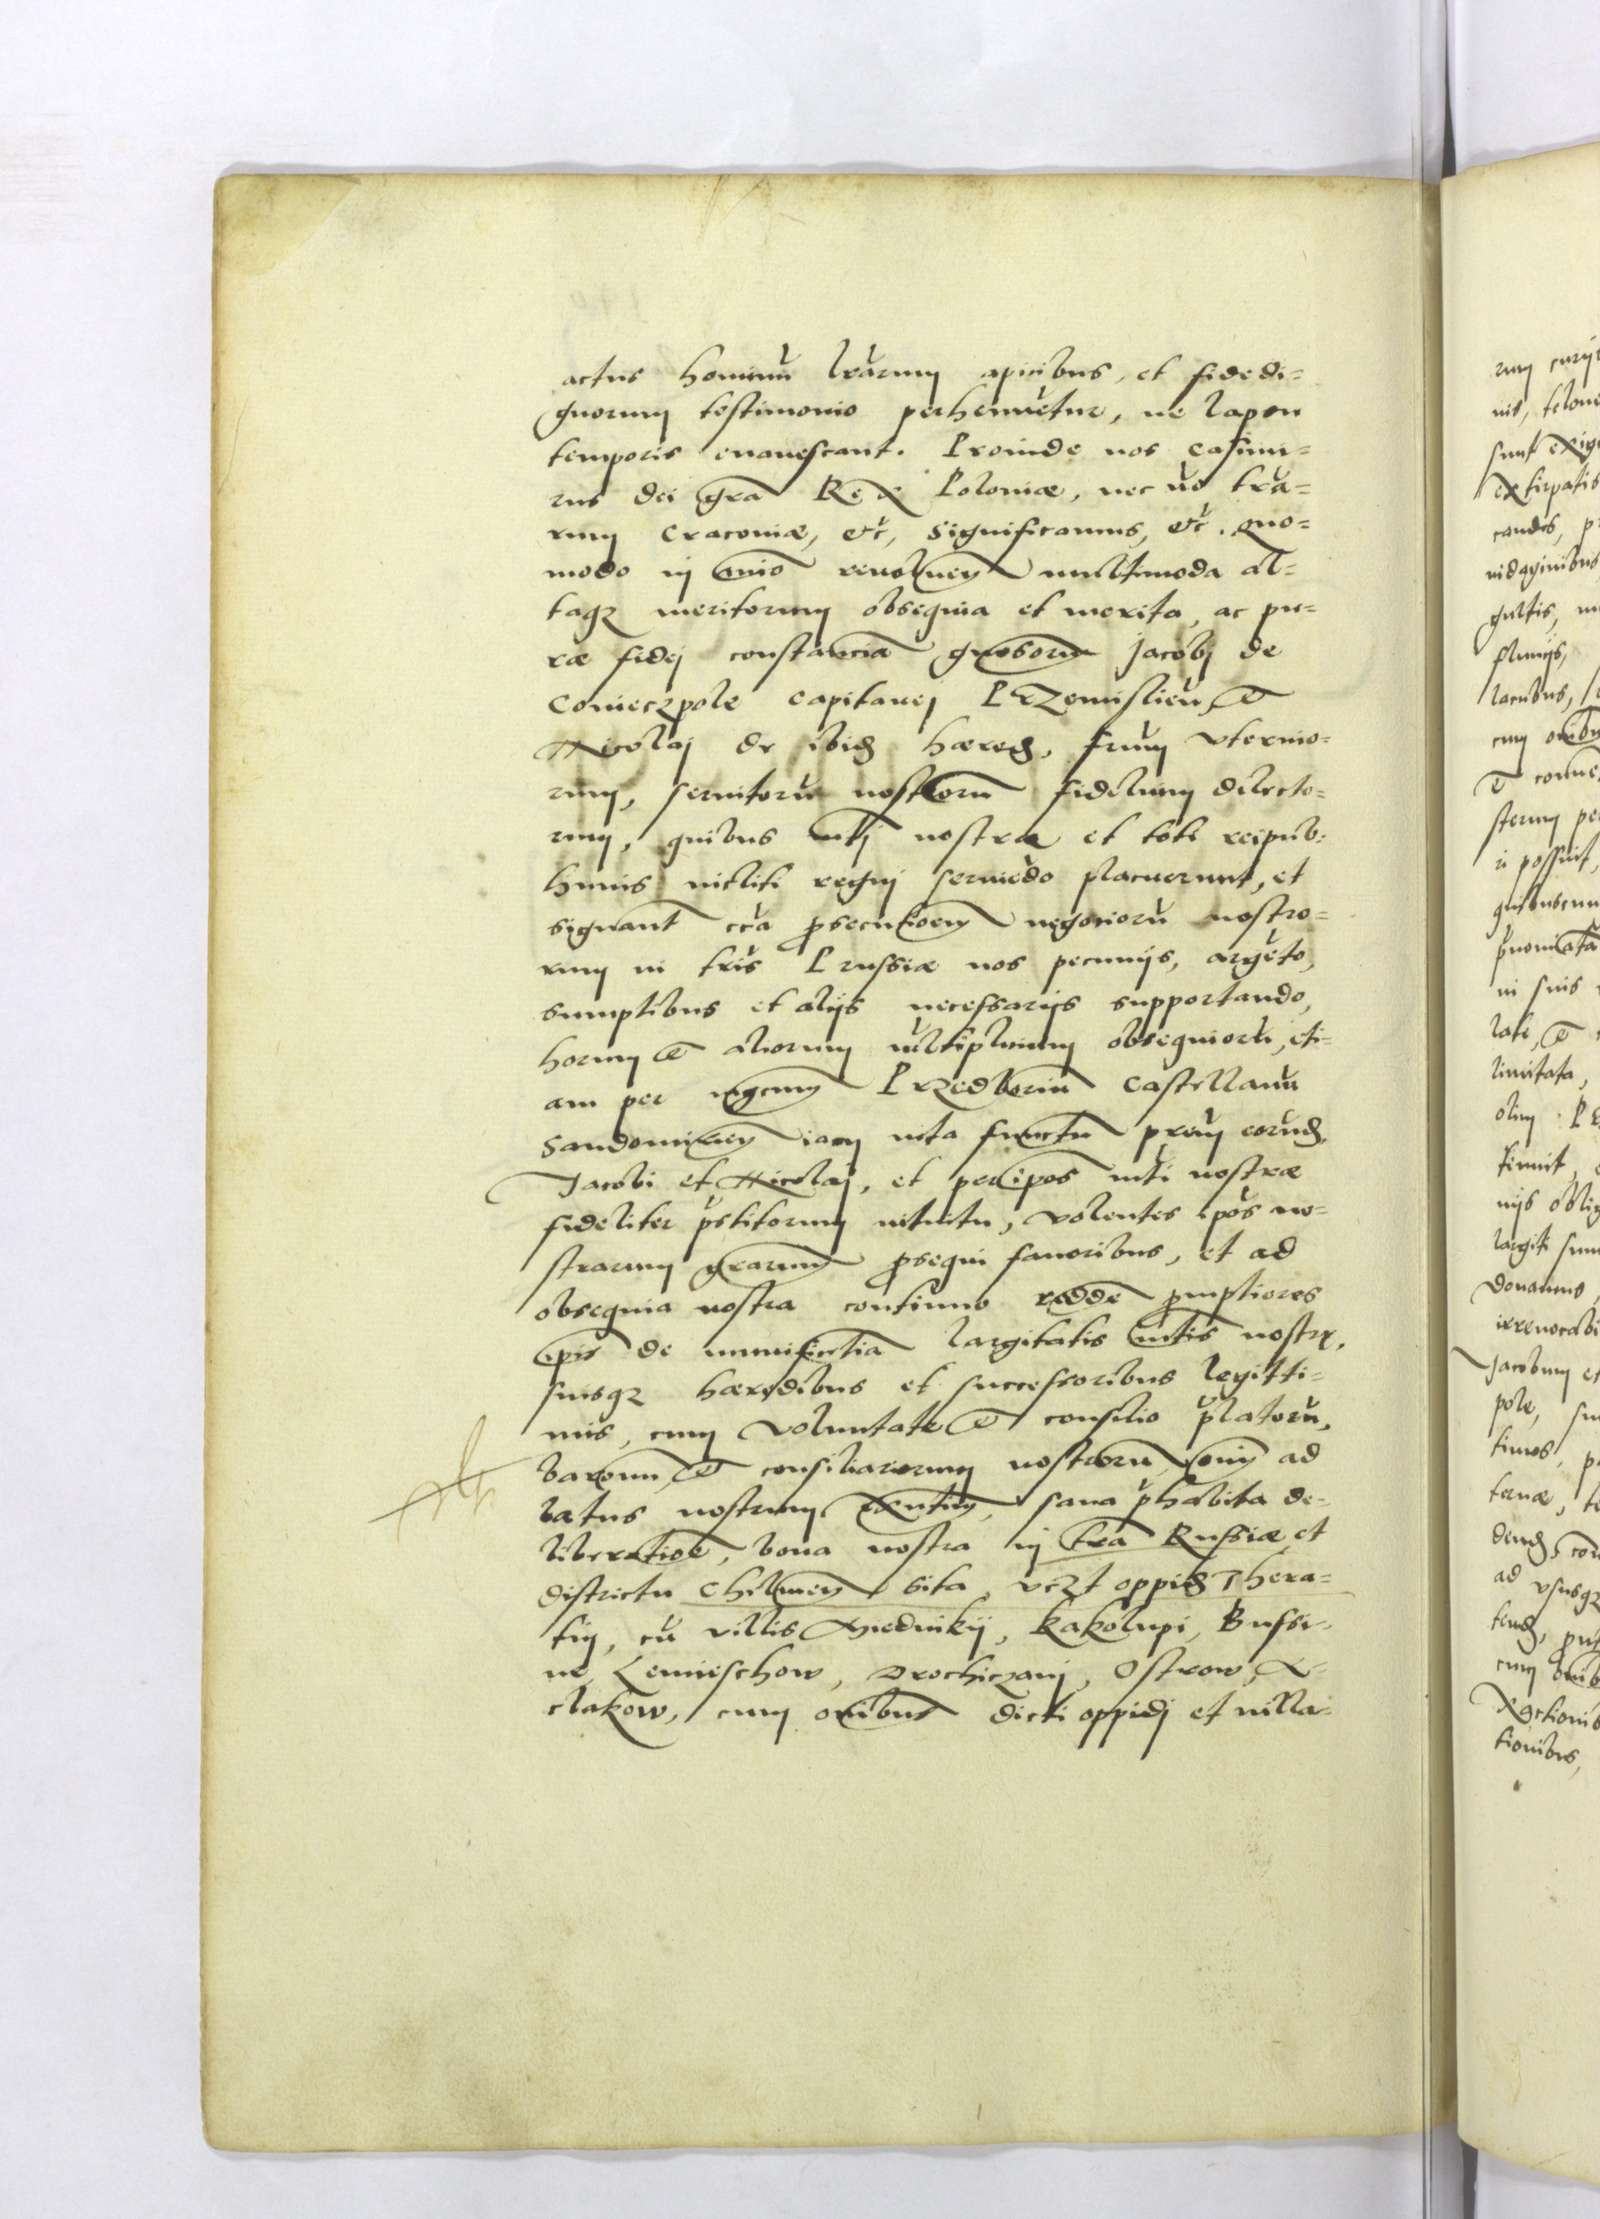 actus hominũ lrãrum apicibus, et fide di=
gnorum testimonio perhennẽtur, ne lapsu
temporis evanescant. Proinde nos Casimi=
rus dei grã Rex Poloniæ, nec nõ trã=
rum Cracoviæ, etc̃, significamus, etc̃. quo=
modo in aniõ revolven̄ multimoda al=
taq meritorum obsequia et merita, ac pu=
ræ fidei constanciã gnosorũ Jacobi de
Conieczpole capitanei Przemislien̄, et
Nicolai de ibid hæred, frum uterino=
rum, servitorũ nostrorũ fidelium dilecto=
rum, quibus mti nostræ et toti reipub:
huius incliti regni serviẽdo placuerunt, et
signant̃ circa prosecutioẽm negociorũ nostro=
rum in tris̃ Prussiæ nos pecuniis, argẽto,
sumptibus et aliis necessariis supportando,
horum et aliorum multiplicium obsequiorũ, eti=
am per mgcum Przedboriũ Castellanũ
Sandomirien̄ iam vita functũ prem eorund,
Jacobi et Nicolai, et per ipos mti nostræ
fideliter pr̃stitorum intuitu, volentes ipõs no=
strarum grarum prosequi favoribus, et ad
obsequia nostra continuo reddẽ promptiores
ipis de munificentiã largitatis mtis nostræ,
suisq hæredibus et successoribus legitti=
mis, cum voluntate et consilio pr̃latorũ,
baronũ, et consiliariorum nostrorũ, oniũ ad
latus nostrum exñtium, sana pr̃habita de=
liberatioẽ, bona nostra in trã Russiæ et
districtu Chelmen̄ sita, vczt oppid Thera=
tin, cũ villis Miedniki, Kakolupi, Bussi=
ne, Lenieschow, Drochiczani, Ostrow, X=
clakow, cum onĩbus dicti oppidi et villa=